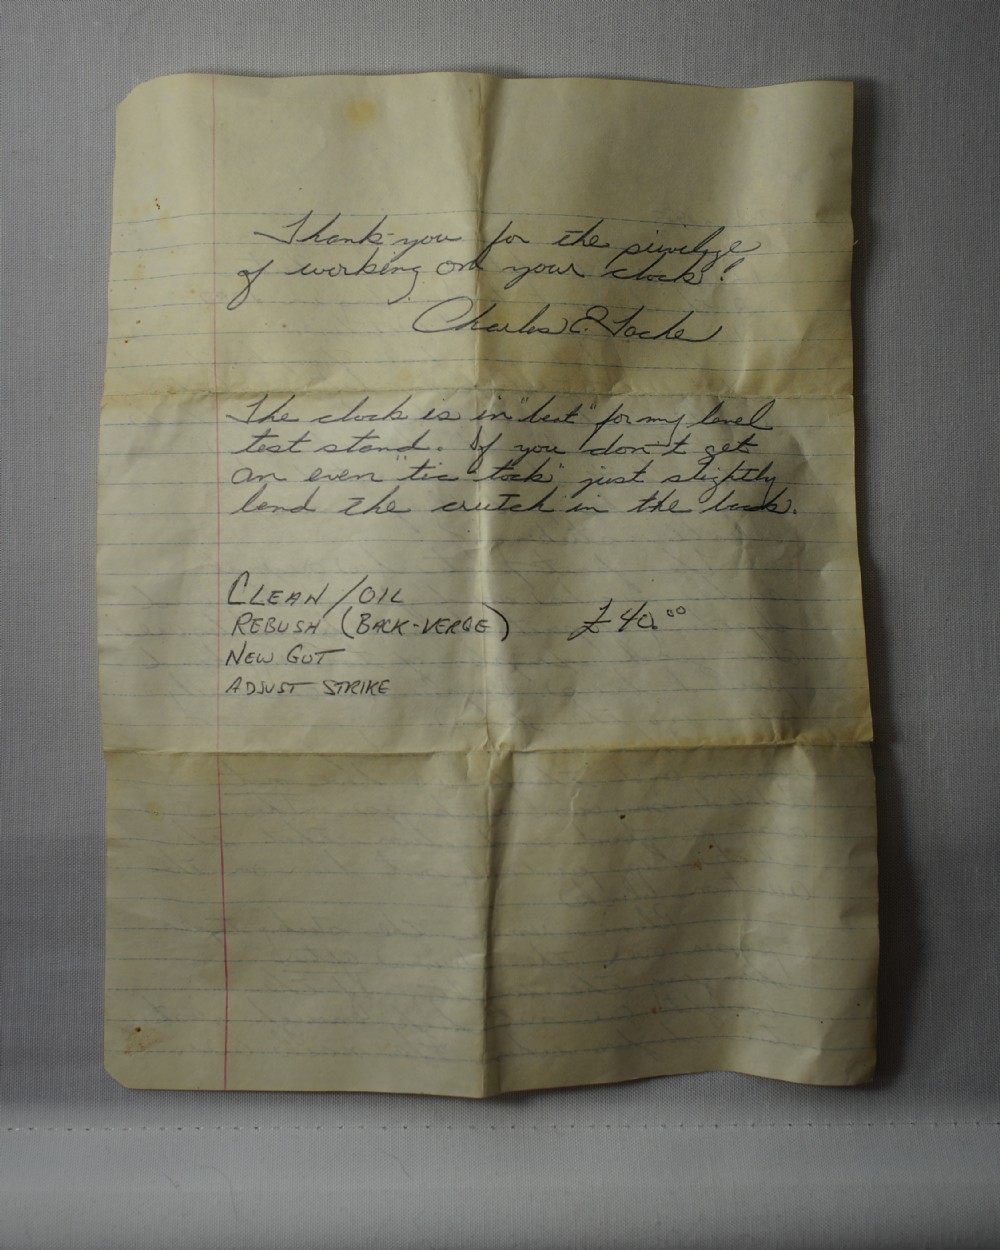 Thank-you for the privilege
of working on your clock!
Charles E. Locke
The clock is in "beat" for my level
test stand. If you don't get
an even "tic-tock" just slightly
bend the crutch in the back.
CLEAN/OIL
REBUSH (BACK-VERGE) £40.00
NEW GUT
ADJUST STRIKE